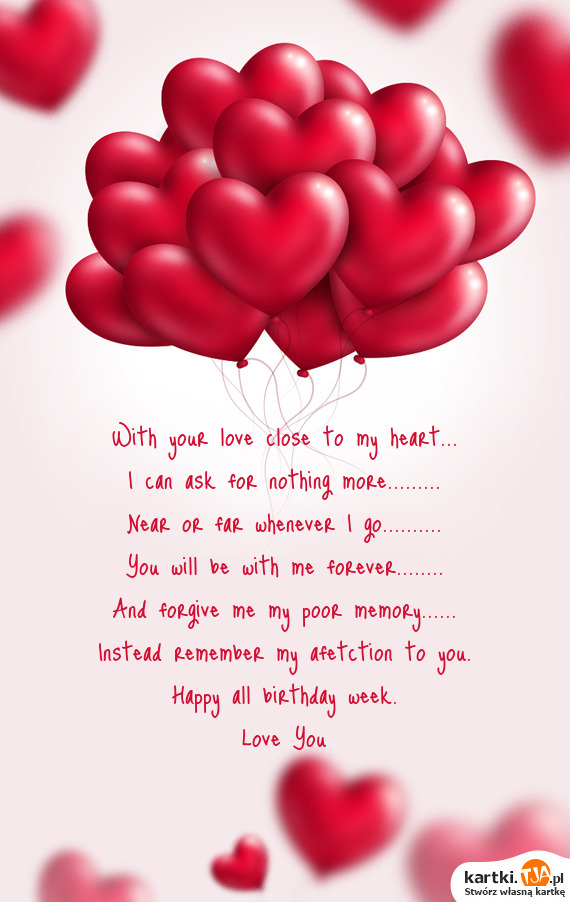 With your love close to my heart...
I can ask for nothing more.........
Near or far whenever I go..........
You will be with me forever........
And forgive me my poor memory......
Instead remember my afetction to you.
Happy all birthday week.
Love You
kartki.TJA.pl
Stwórz własną kartkę